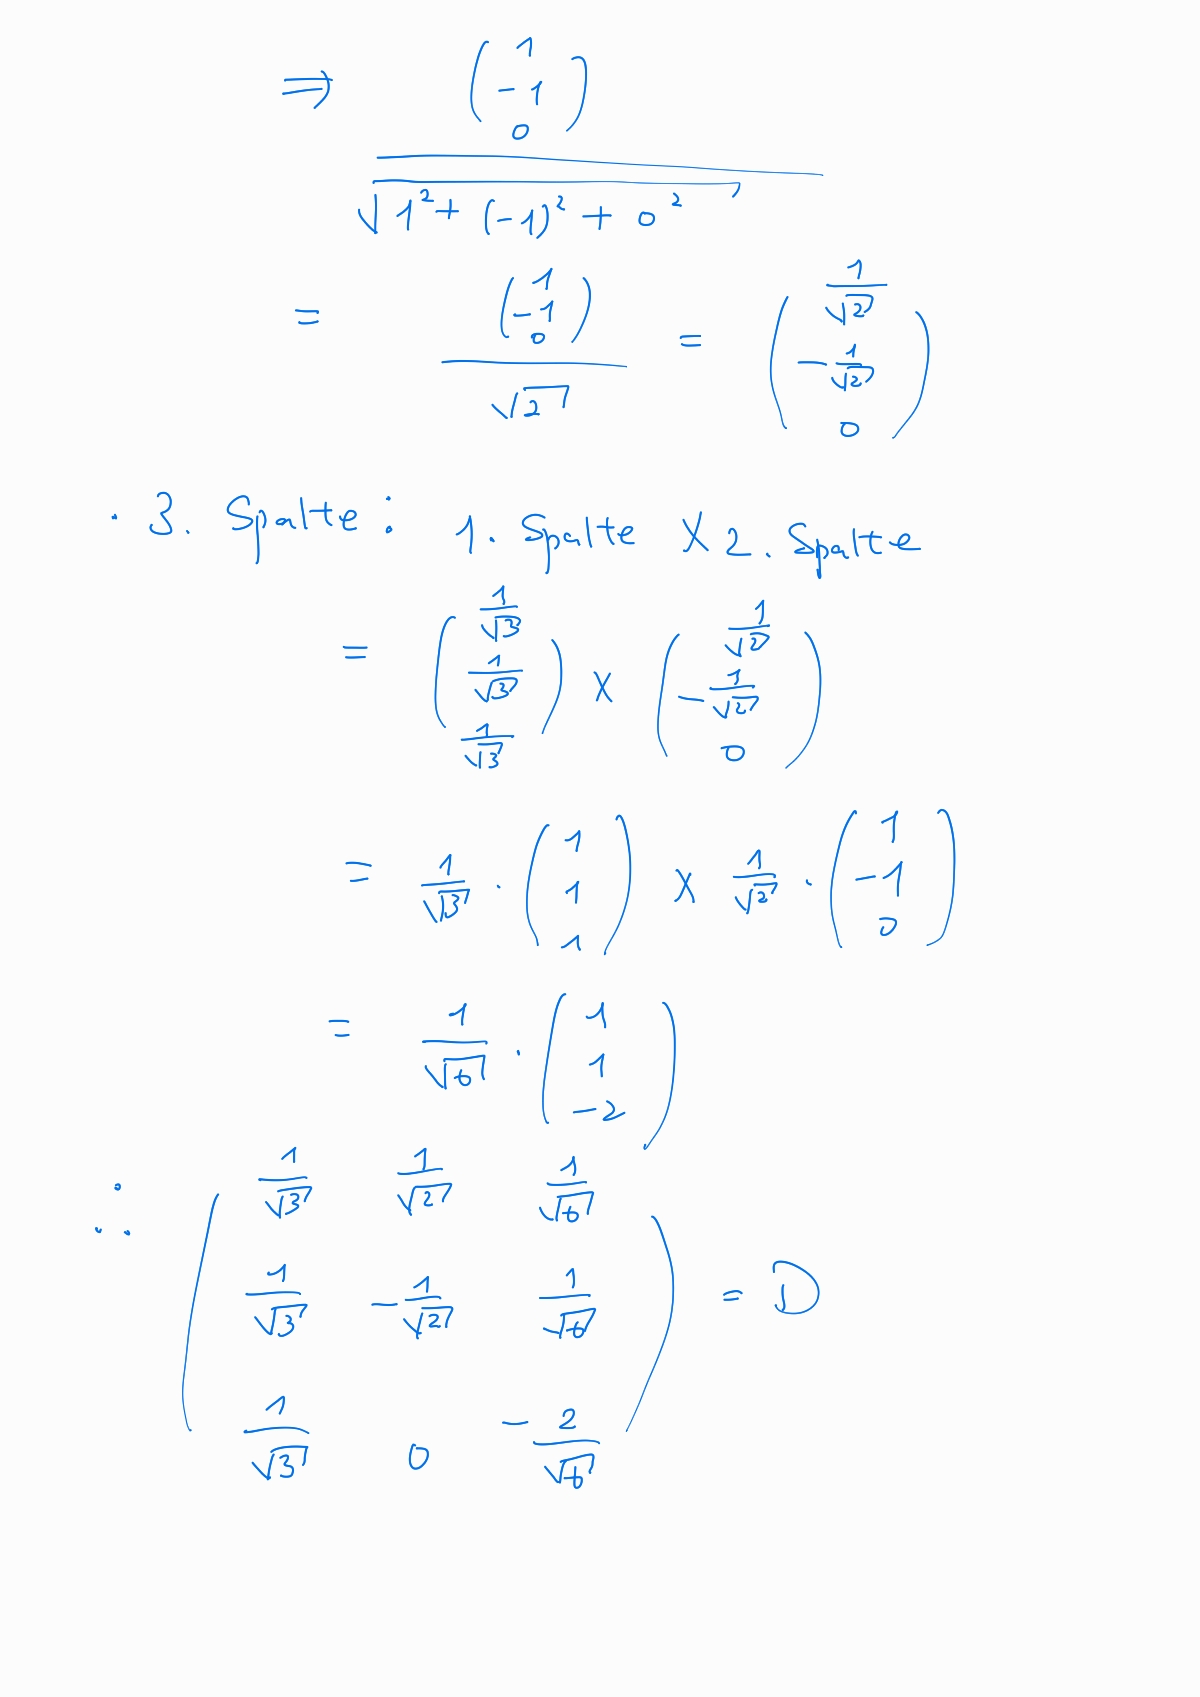 ⇒ (1 -1 0) / √(1² + (-1)² + 0²)
= (1 -1 0) / √2 = (1/√2 -1/√2 0)
· 3. Spalte: 1. Spalte X 2. Spalte
= (1/√3 1/√3 1/√3) X (1/√2 -1/√2 0)
= 1/√3 · (1 1 1) X 1/√2 · (1 -1 0)
= 1/√6 · (1 1 -2)
∴ (1/√3 1/√2 1/√6
1/√3 -1/√2 1/√6
1/√3 0 -2/√6) = D